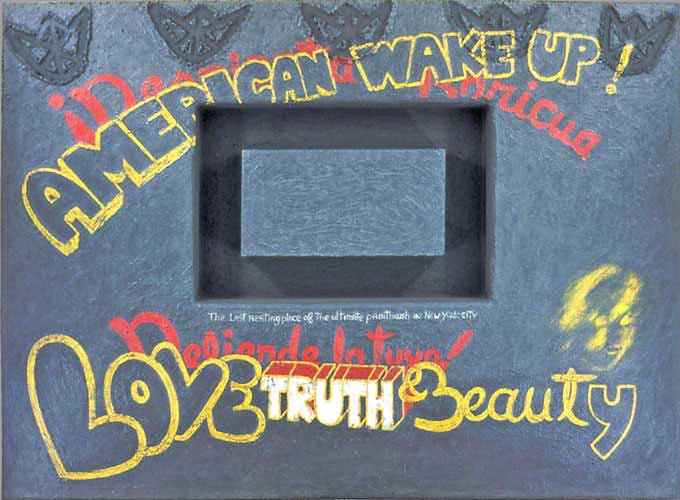 ¡Despierta Boricua
AMERICAN WAKE UP!
The Last Resting place of The ultimate paintbrush in New York City
Defiende lo tuyo!
LOVE TRUTH & Beauty